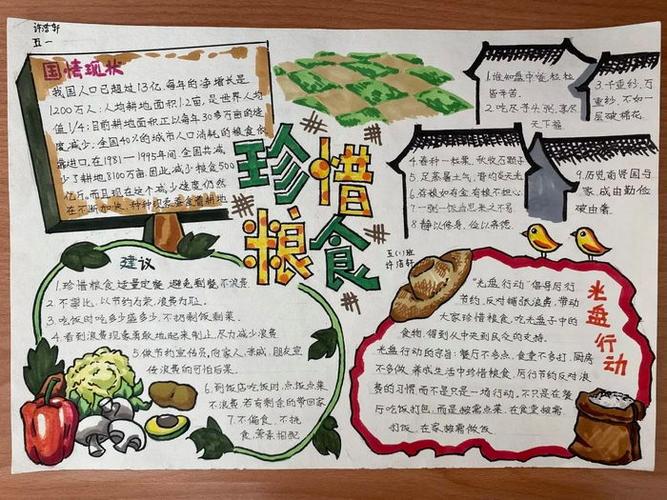 五一
国情现状
我国人口已超过13亿,每年的净增长是
1200万人;人均耕地面积1.2亩,是世界人均
值1/4;目前耕地面积正以每年30多万亩的速
度减少;全国40%的城市人口消耗的粮食依
靠进口。在1981—1995年间,全国共减
少了耕地8100万亩因此减少粮食500
亿斤。而且现在这个减少速度仍然
在不断加快,种种现象要食着耕地
珍惜
粮食
1.谁知盘中餐,粒粒
皆辛苦
2.吃尽
天下福
3.千重纱,万
重纱,不如一
层破棉花
4.春种一粒粟,秋收万颗子
5.
6.谷粮如有金,有粮不担心
7.一粥一饭当思来之不易
8.静以修身,俭以养德
9.历览前贤国与
家,成由勤俭
破由奢
建议
1.珍惜粮食,适量定餐,避免剩餐,不浪费
2.不攀比,以节约为荣,浪费为耻。
3.吃饭时吃多少盛多少,不扔剩饭剩菜。
4.看到浪费现象勇敢地起来制止,尽力减少浪费
5.做节约宣传员,向家人、亲戚、朋友宣
传浪费的可怕后果。
6.到饭店吃饭时,点饭点菜
不浪费,若有剩余的带回家
7.不偏食,不挑
食,荤素相配
五(一)班
“光盘行动”倡导厉行
节约,反对铺张浪费,带动
大家珍惜粮食,吃光盘子中的
食物,得到从中央到民众的支持。
光盘行动的宗旨:餐厅不多点,食堂不多打,厨房
不多做。养成生活中珍惜粮食、厉行节约反对浪
费的习惯,而不是只是一场行动。不只是在餐
厅吃饭打包,而是按需点菜,在食堂按需
打饭,在家按需做饭
光盘行动